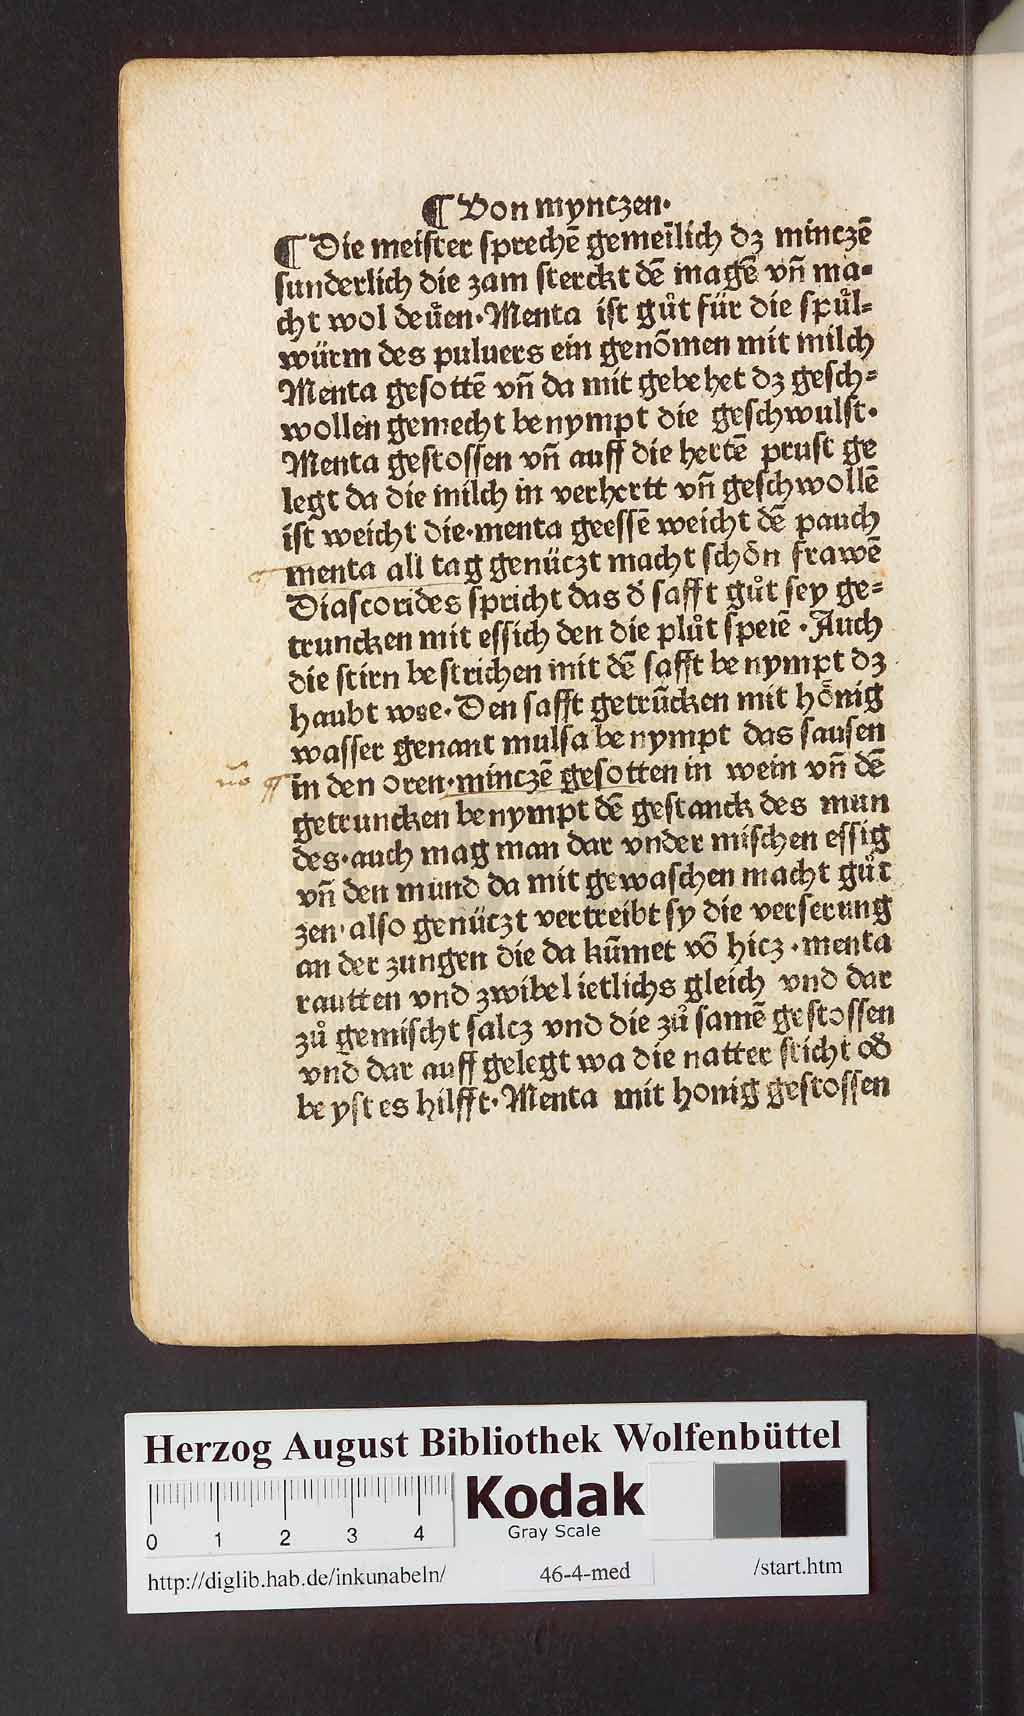 ¶ Von mynczen·
¶ Die meister sprechē gemeīlich dʒ minczē
sunderlich die zam sterckt dē magē vn̄ ma-
cht wol deuͤen·Menta ist guͦt für die spuͤl-
würm des puluers ein genōmen mit milch
Menta gesottē vn̄ da mit gebehet dʒ gesch-
wollen gemecht benympt die geschwulst·
Menta gestossen vn̄ auff die hertē prust ge
legt da die milch in verhertt vn̄ geschwollē
ist weicht die·menta geessē weicht dē pauch
menta all tag genüczt macht schön frawē
Diascorides spricht das d' safft guͦt sey ge-
truncken mit essich den die pluͦt speiē·Auch
die stirn bestrichen mit dē safft benympt dʒ
haubt wee·Den safft getrūcken mit hönig
wasser genant mulsa benympt das sausen
in den oren·minczē gesotten in wein vn̄ dē
getruncken benympt dē gestanck des mun
des·auch mag man dar vnder mischen essig
vn̄ den mund da mit gewaschen macht guͦt
zen·also genüczt vertreibt sy die verserung
an der zungen die da kūmet vō hicz·menta
rautten vnd zwibel ietlichs gleich vnd dar
zuͦ gemischt salcz vnd die zuͦ samē gestossen
vnd dar auff gelegt wa die natter sticht od'
beyst es hilfft·Menta mit honig gestossen
Herzog August Bibliothek Wolfenbüttel
0 1 2 3 4
Kodak
Gray Scale
http://diglib.hab.de/inkunabeln/ 46-4-med /start.htm